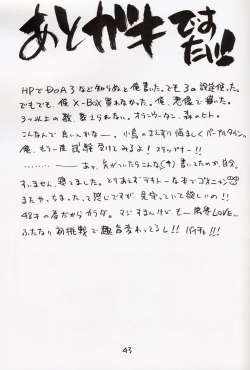 あとがきですだい!!
HPでDOA3など知らぬと俺書いた。でも3の設定使った。
でもでも、俺X-Box買えなかった。俺、想像で描いた。
3つ以上の数、数えられない。オランウータン、森のヒト。
こんなんで良いんかなー。小鳥のさえずり悩ましくパープルタイム。
俺、もう一度試験受けてみるよ!ステップナー!!
………ーあっ、気がついたらこんな(〃)書いてたのか、自分。
すいません、寝てました。とりあえずテキトーな本でゴメンナー
またや、ちまった、って感じですが、見守っていて欲しいの!!
48才の春だからカラダ。マジすまんけども一発LOVE。
ふたなり初挑戦で趣旨変わってるし!!バイチャ!!!
43